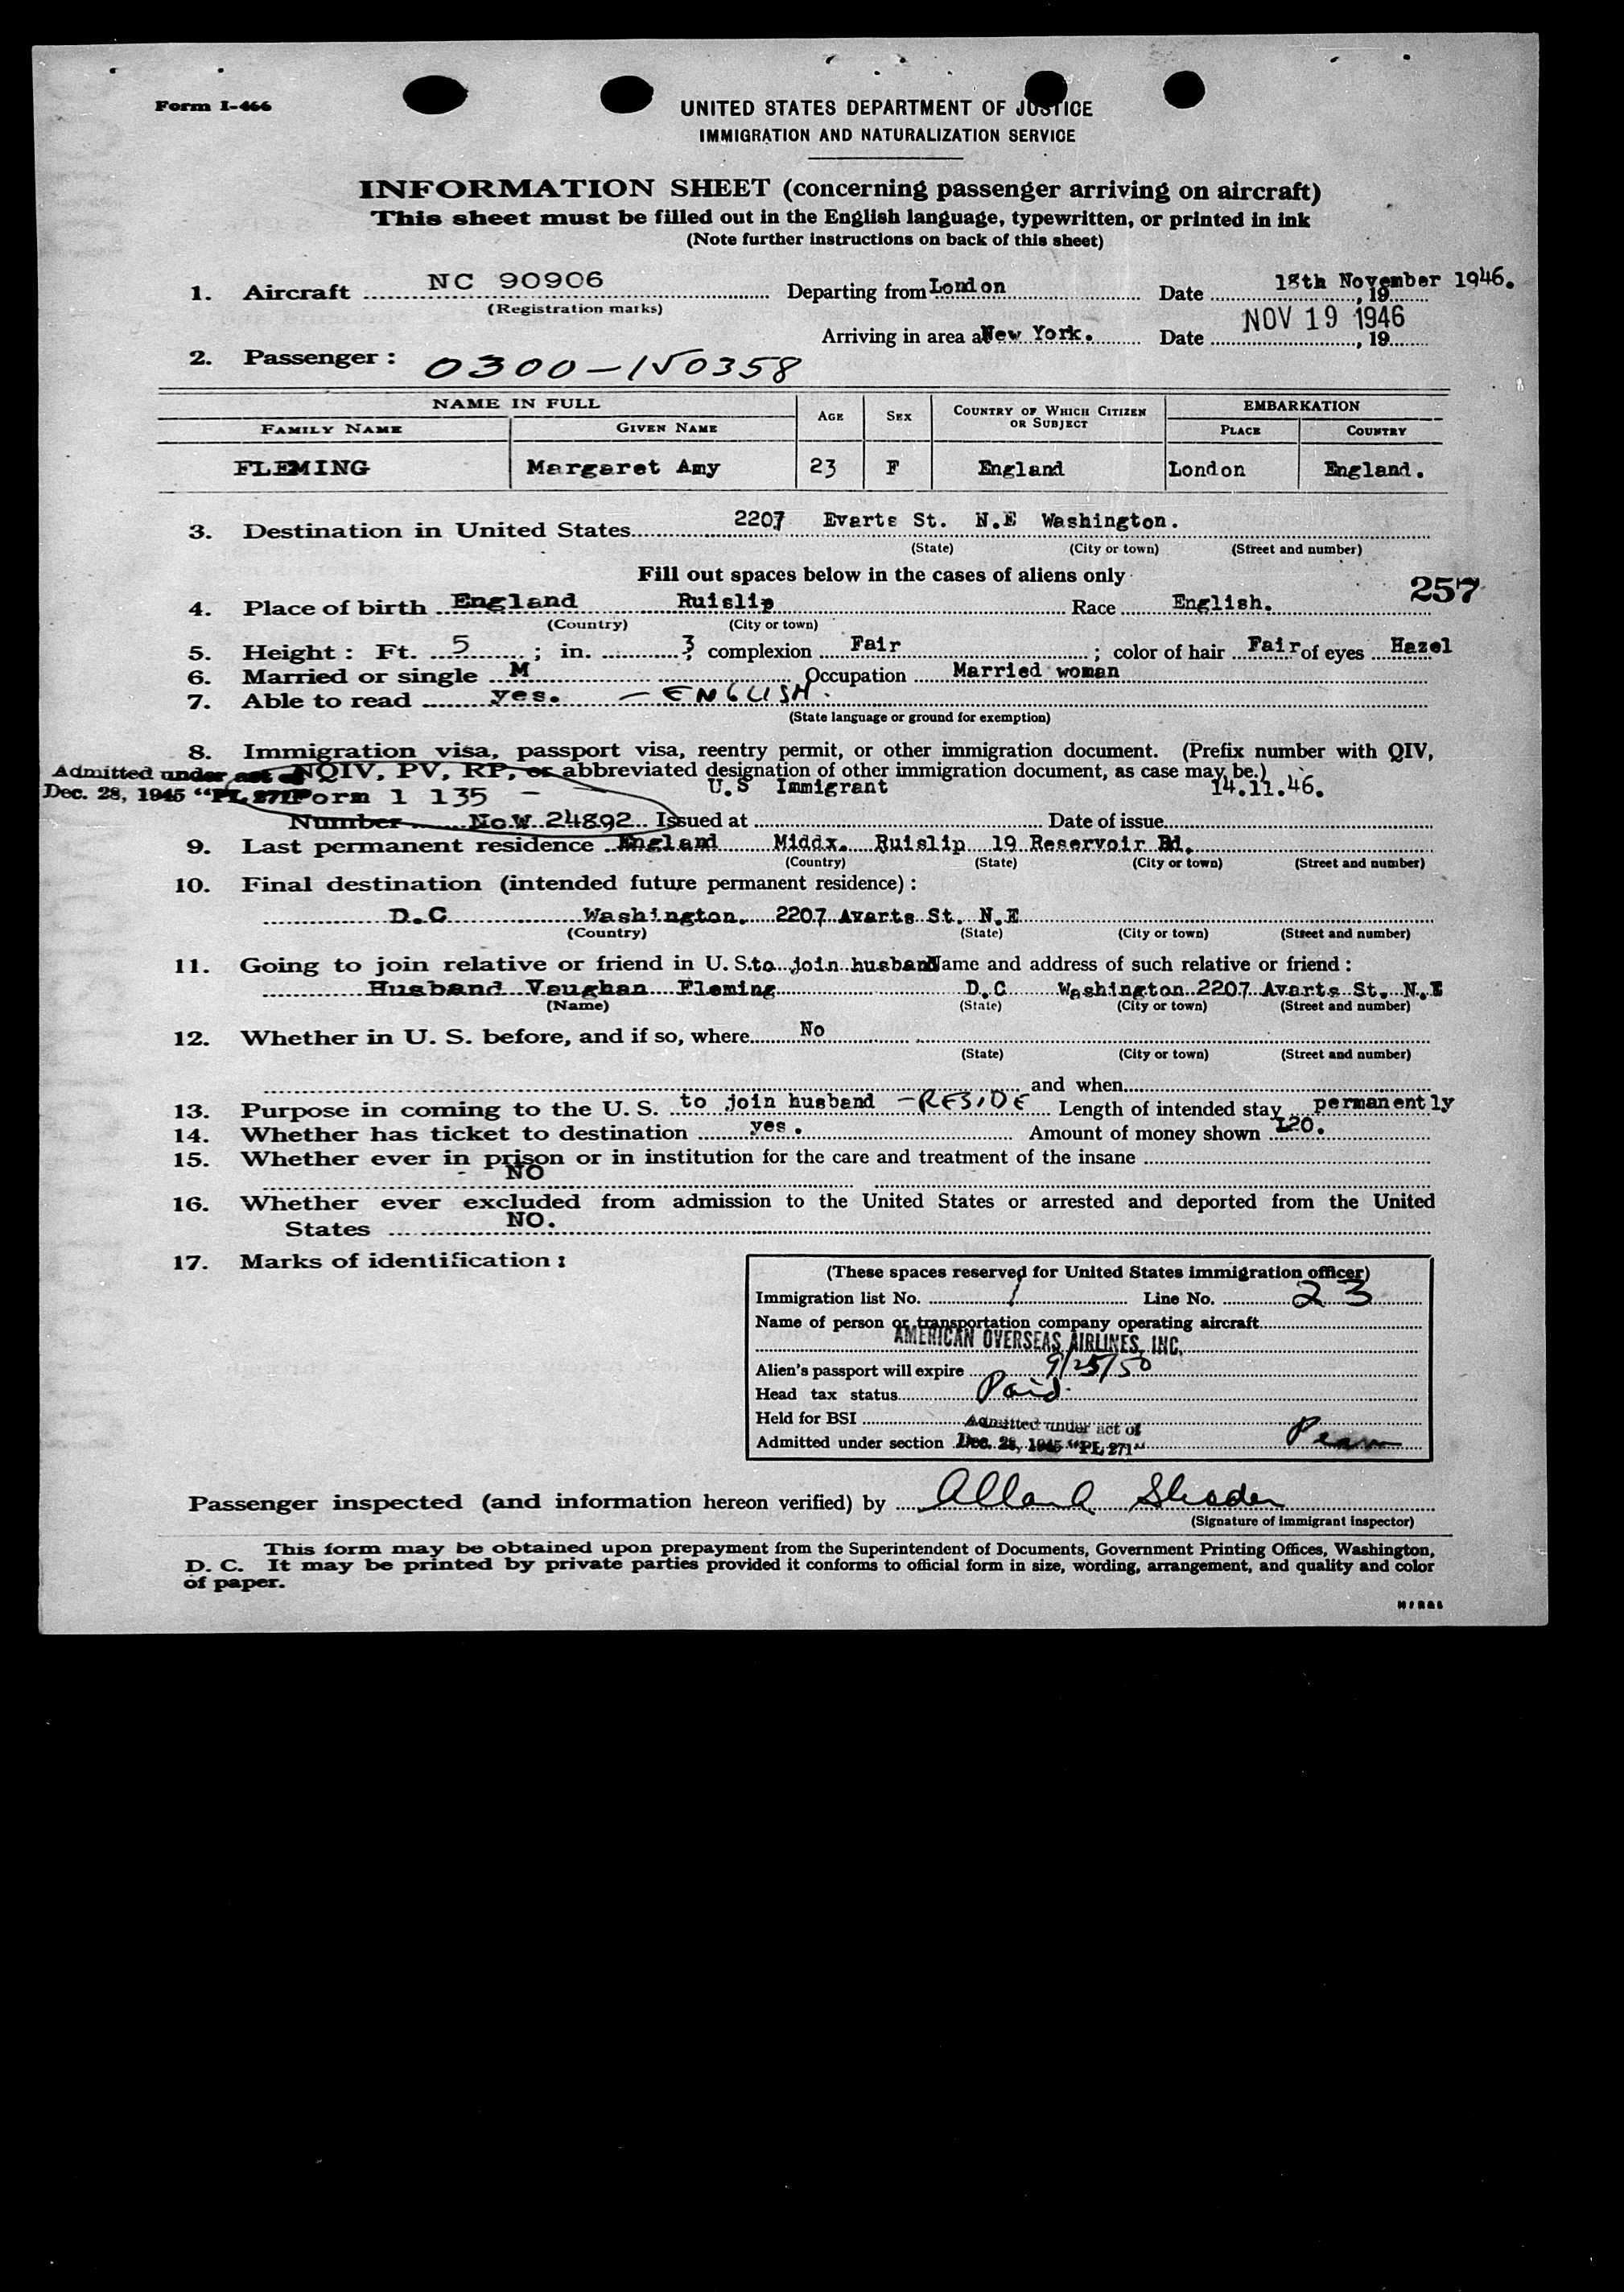 Form I-466
UNITED STATES DEPARTMENT OF JUSTICE
IMMIGRATION AND NATURALIZATION SERVICE
INFORMATION SHEET (concerning passenger arriving on aircraft)
This sheet must be filled out in the English language, typewritten, or printed in ink
(Note further instructions on back of this sheet)
1. Aircraft NC 90906 Departing from London Date 18th November 1946. , 19
(Registration marks)
Arriving in area a New York. Date NOV 19 1946 , 19
2. Passenger : 0300-150358
NAME IN FULL AGE SEX COUNTRY OF WHICH CITIZEN OR SUBJECT EMBARKATION
FAMILY NAME GIVEN NAME PLACE COUNTRY
FLEMING Margaret Amy 23 F England London England.
3. Destination in United States 2207 Evarts St. N.E Washington.
(State) (City or town) (Street and number)
Fill out spaces below in the cases of aliens only
257
4. Place of birth England Ruislip Race English.
(Country) (City or town)
5. Height : Ft. 5 ; in. 3 ; complexion Fair ; color of hair Fair of eyes Hazel
6. Married or single M Occupation Married woman
7. Able to read yes. - ENGLISH.
(State language or ground for exemption)
8. Immigration visa, passport visa, reentry permit, or other immigration document. (Prefix number with QIV,
Admitted under act of NQIV, PV, RP, or abbreviated designation of other immigration document, as case may be.)
Dec. 28, 1945 "PL 271" Form 1 135 - U.S Immigrant 14.11.46.
Number No.W 24892 Issued at Date of issue
9. Last permanent residence England Middx. Ruislip 19 Reservoir Rd.
(Country) (State) (City or town) (Street and number)
10. Final destination (intended future permanent residence) :
D.C Washington. 2207 Avarts St. N.E
(Country) (State) (City or town) (Street and number)
11. Going to join relative or friend in U. S. to join husband Name and address of such relative or friend :
Husband Vaughan Fleming D.C Washington 2207 Avarts St. N.E
(Name) (State) (City or town) (Street and number)
12. Whether in U. S. before, and if so, where No
(State) (City or town) (Street and number)
and when
13. Purpose in coming to the U. S. to join husband - RESIDE Length of intended stay permanently
14. Whether has ticket to destination yes. Amount of money shown £20.
15. Whether ever in prison or in institution for the care and treatment of the insane
- NO
16. Whether ever excluded from admission to the United States or arrested and deported from the United
States NO.
17. Marks of identification :
(These spaces reserved for United States immigration officer)
Immigration list No. 1 Line No. 23
Name of person or transportation company operating aircraft
AMERICAN OVERSEAS AIRLINES, INC.
Alien's passport will expire 9/25/50
Head tax status Paid.
Held for BSI Admitted under act of
Admitted under section Dec. 28, 1945 "PL 271" Perm
Passenger inspected (and information hereon verified) by
(Signature of immigrant inspector)
This form may be obtained upon prepayment from the Superintendent of Documents, Government Printing Offices, Washington,
D. C. It may be printed by private parties provided it conforms to official form in size, wording, arrangement, and quality and color
of paper.